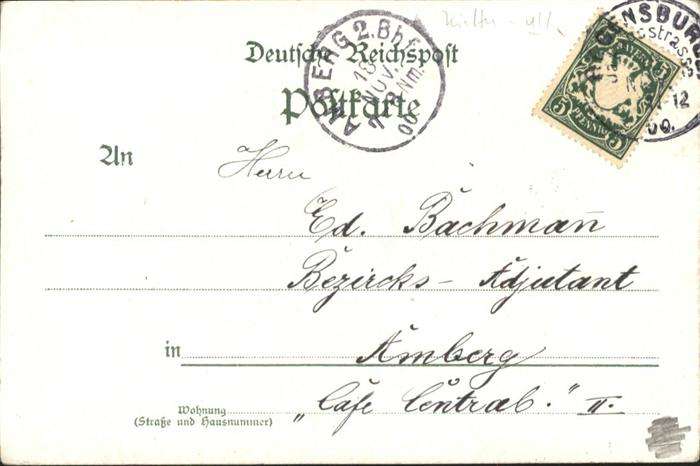 Deutsche Reichspost
Postkarte
AMBERG 2. Bhf.
18
NOV.
Nm.
00
REGENSBURG
BAYERN
5 PFENNIG 5
An
Herrn
Ed. Bachman̄
Bezircks - Adjutant
in Amberg
Wohnung
(Straße und Hausnummer)
„Cafe Central." II.